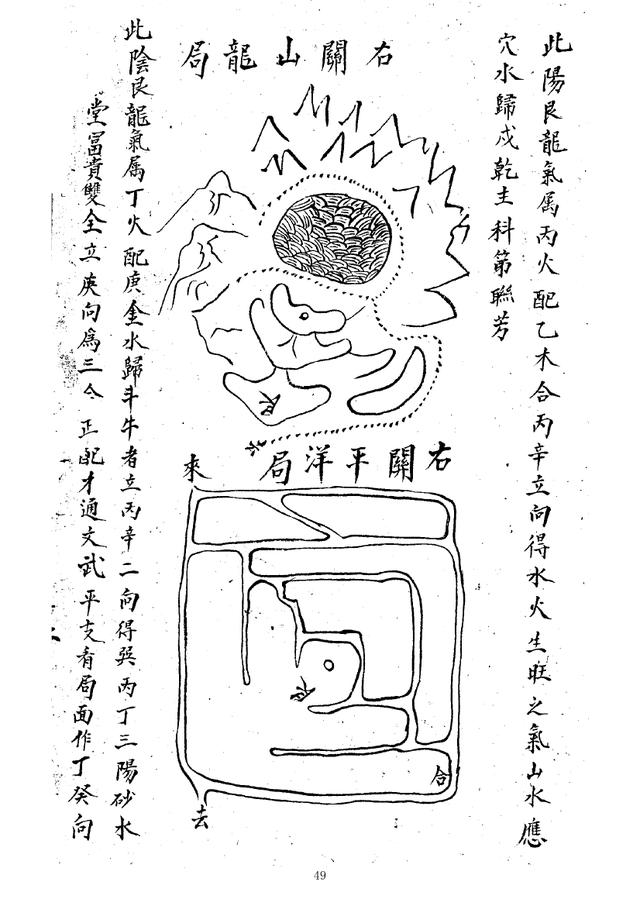 此陽艮龍氣属丙火配乙木合丙辛立向得水火生旺之氣山水應
穴水歸戍乾主科第聯芳
右關山龍局
艮
右關平洋局
來
艮
合
去
此陰艮龍氣属丁火配庚金水歸斗牛者立丙辛二向得巽丙丁三陽砂水
堂冨貴雙全立庚向為三合正配才通文武平支看局面作丁癸向
49